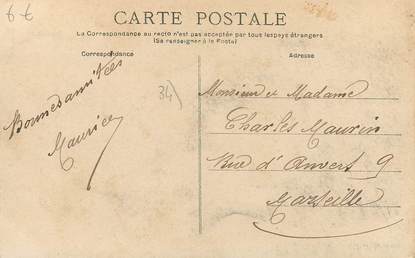 6 €
CARTE POSTALE
La Correspondance au recto n'est pas accepté par tous les pays étrangers
(Se renseigner à la Poste)
Correspondance
Adresse
34)
Bonnes amitiés
Maurice
Monsieur et Madame
Charles Maurin
Rue d'Anvers 9
Marseille